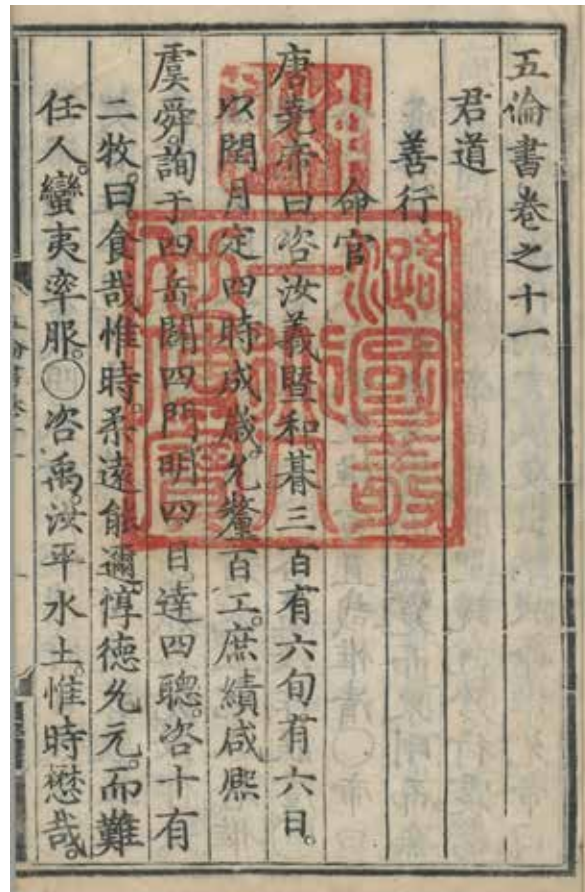 五倫書卷之十一
君道
善行
命官
唐堯帝曰咨汝羲暨和朞三百有六旬有六日。
以閏月定四時成歲。允釐百工。庶績咸熙
虞舜。詢于四岳闢四門。明四目。達四聰。咨十有
二牧。曰。食哉惟時。柔遠能邇。惇德允元。而難
任人。蠻夷率服。咨禹。汝平水土。惟時懋哉。